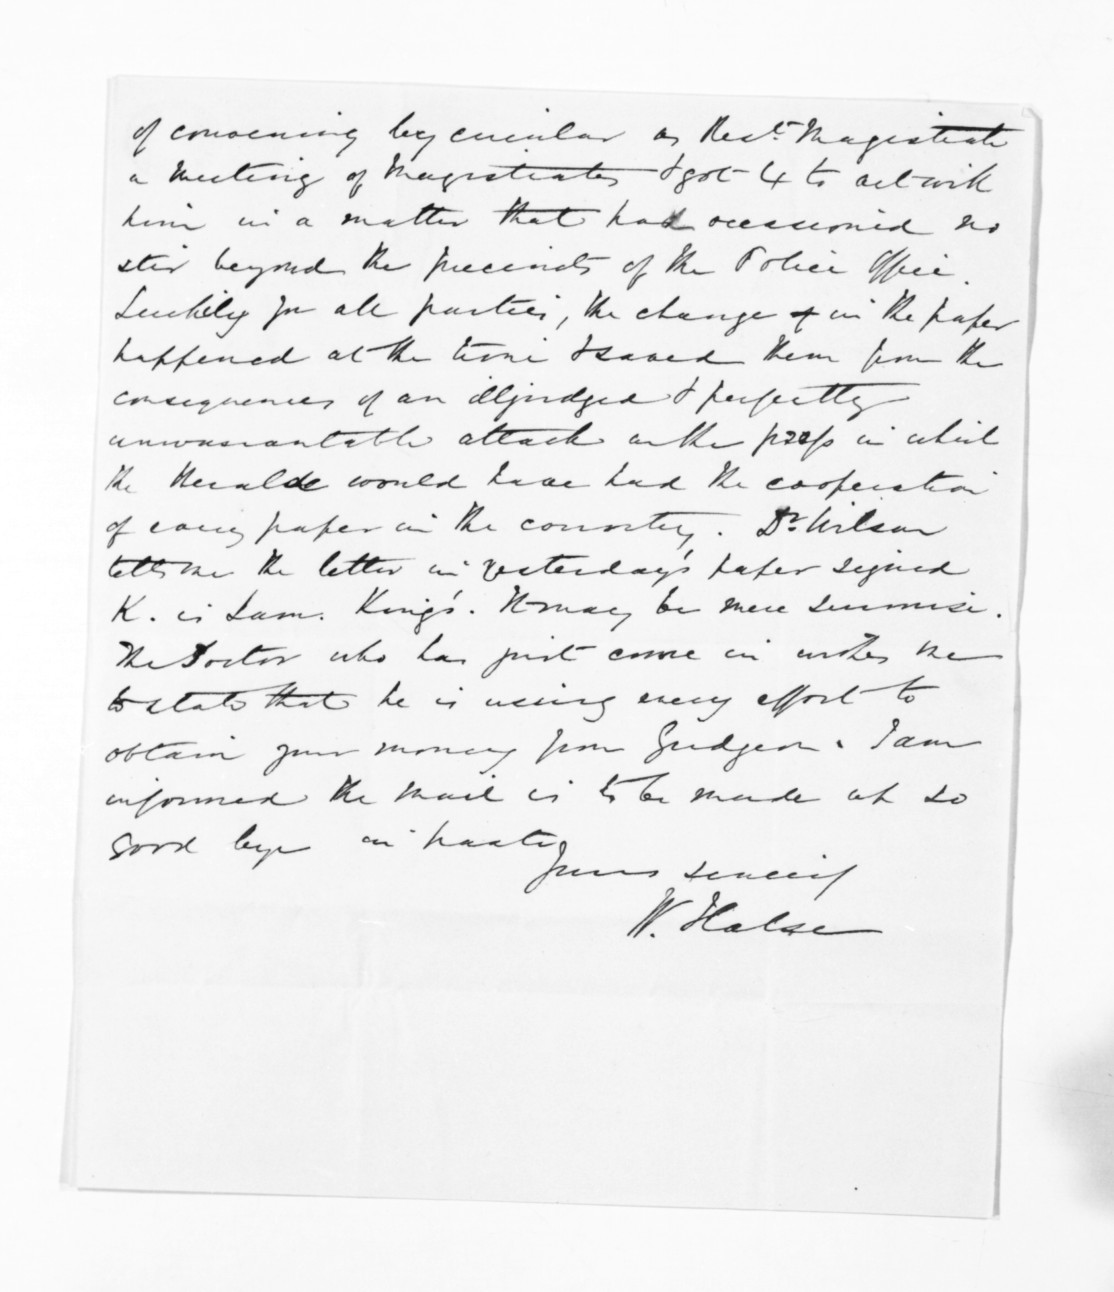 of convening by circular as Rest. Magistrate
a meeting of Magistrates & got 4 to act with
him in a matter that had occasioned no
stir beyond the precincts of the Police Office.
Luckily for all parties, the change + in the paper
happened at the time & saved them from the
consequences of an illjudged & perfectly
unwarrantable attack on the press in which
the Herald would have had the cooperation
of every paper in the country. Dr. Wilson
tells me the letter in yesterday's paper signed
K. is Sam. King's. It may be mere surmise.
The Doctor who has just come in wishes me
to state that he is using every effort to
obtain your money from Gudgeon. I am
informed the mail is to be made up so
good bye in haste
Yours sincerely
W. Halse